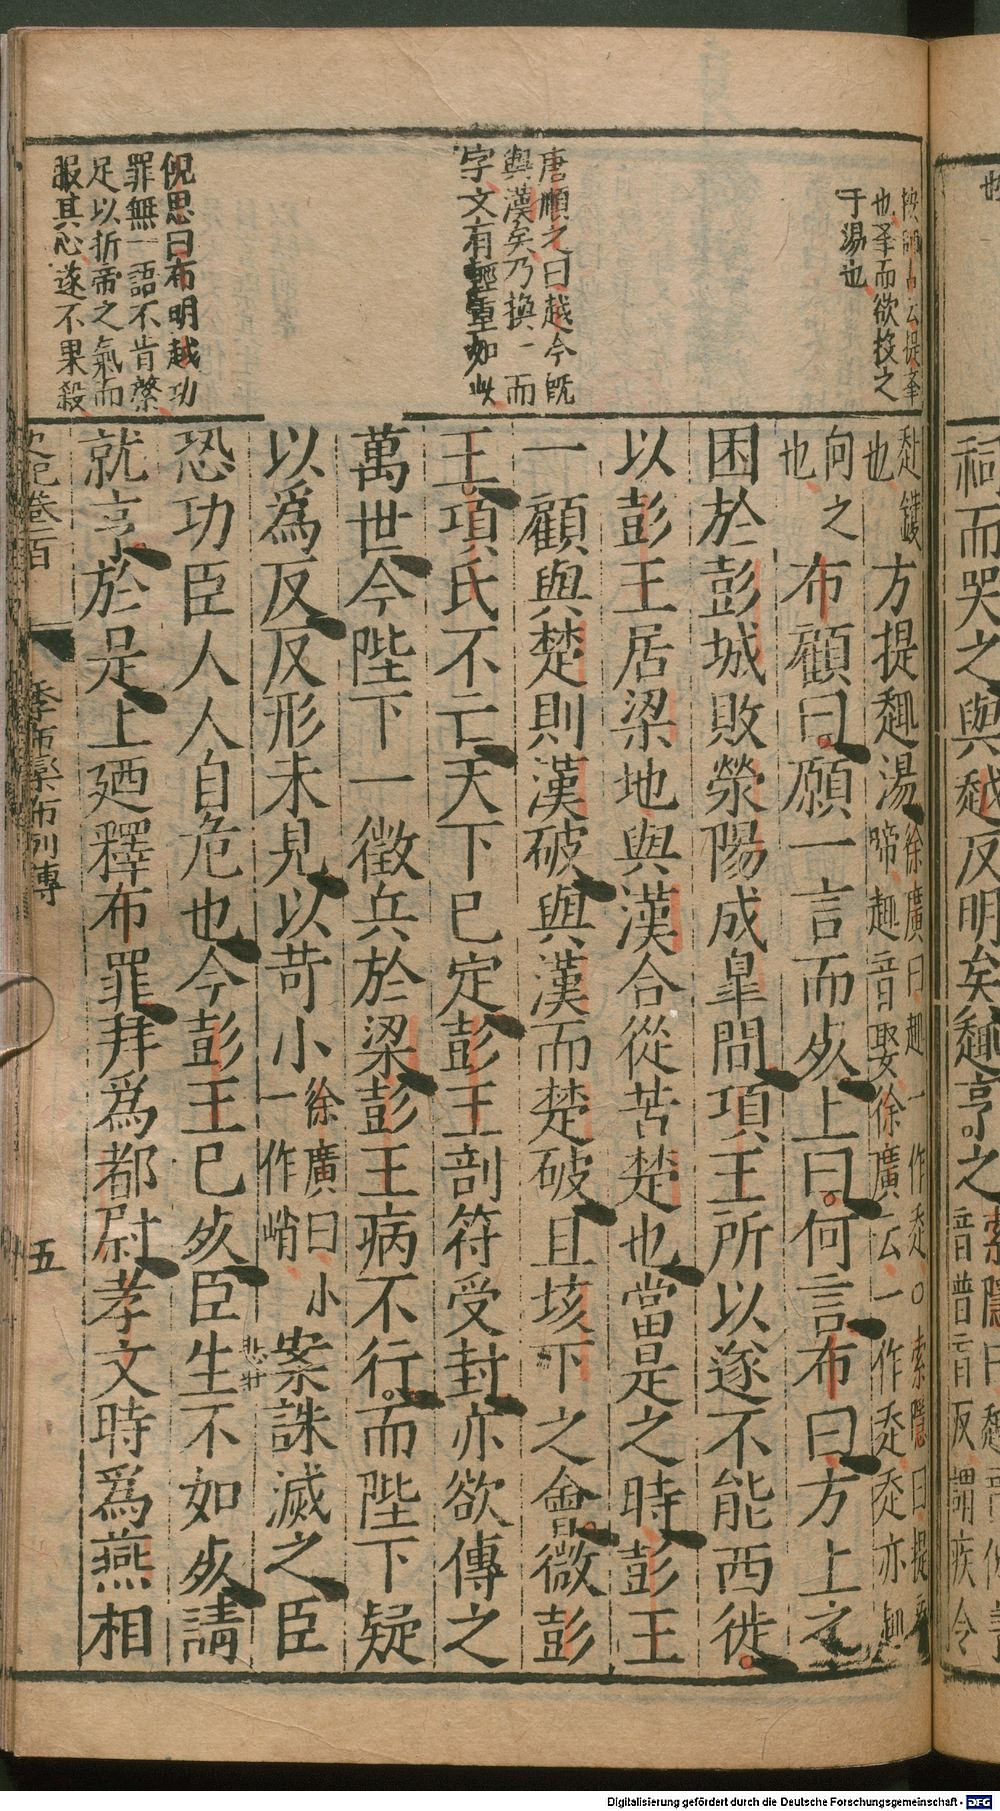 也
祠而哭之與越反明矣趣亨之
音普盲反謂疾令
也辜而欲投之
于湯也
唐順之曰越今既
與漢矣乃換一而
字文有輕重如此
倪思曰布明越功
罪無一語不肯縈
足以折帝之氣而
服其心遂不果殺
赴鑊
也
方提趣湯
徐廣曰趣一作走○索隱曰提
啼趣音娶徐廣云一作走走亦
向之
也
布顧曰願一言而死上曰何言布曰方上之
困於彭城敗滎陽成皐間項王所以遂不能西徙
以彭王居梁地與漢合從苦楚也當是之時彭王
一顧與楚則漢破與漢而楚破且垓下之會微彭
王項氏不亡天下已定彭王剖符受封亦欲傳之
萬世今陛下一徵兵於梁彭王病不行而陛下疑
以爲反反形未見以苛小
徐廣曰小
一作峭
案誅滅之臣
悲壯
恐功臣人人自危也今彭王已死臣生不如死請
就亨於是上廼釋布罪拜爲都尉孝文時爲燕相
史記卷百 季布欒布列傳 五
Digitalisierung gefördert durch die Deutsche Forschungsgemeinschaft - DFG